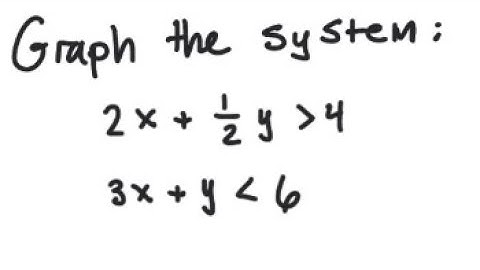 Graph the system:
2x + 1/2 y > 4
3x + y < 6